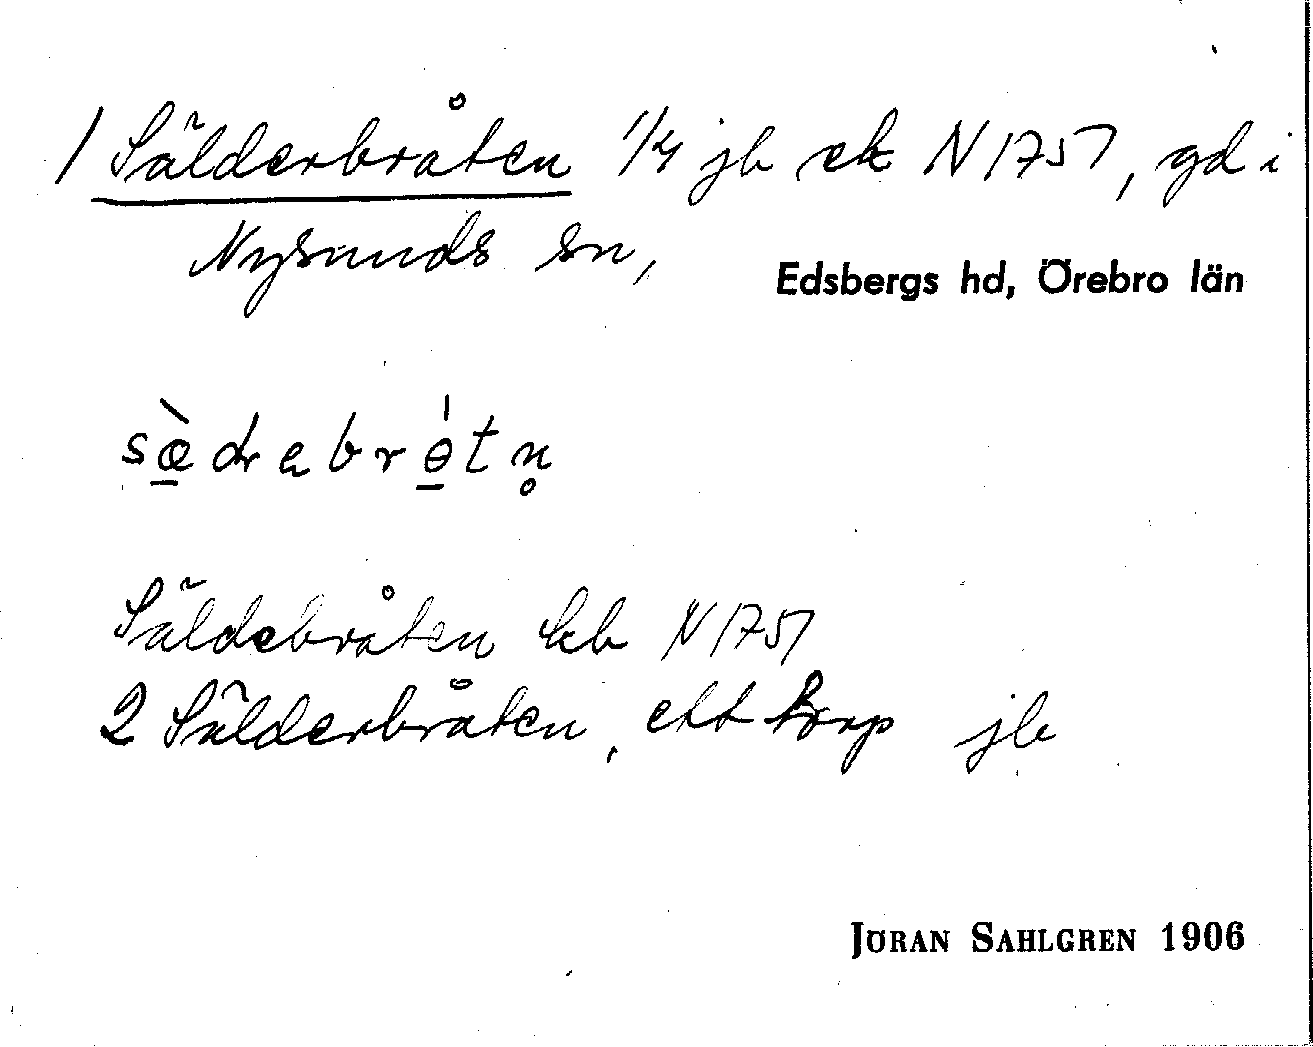 1 Sälderbråten 1/4 jb ek N 1757, gd i
Nysunds sn,
Edsbergs hd, Örebro län
sæ̀drabrɵ́tn̥
Säldebråten kb N 1757
2 Sälderbråten, ett torp jb
JÖRAN SAHLGREN 1906